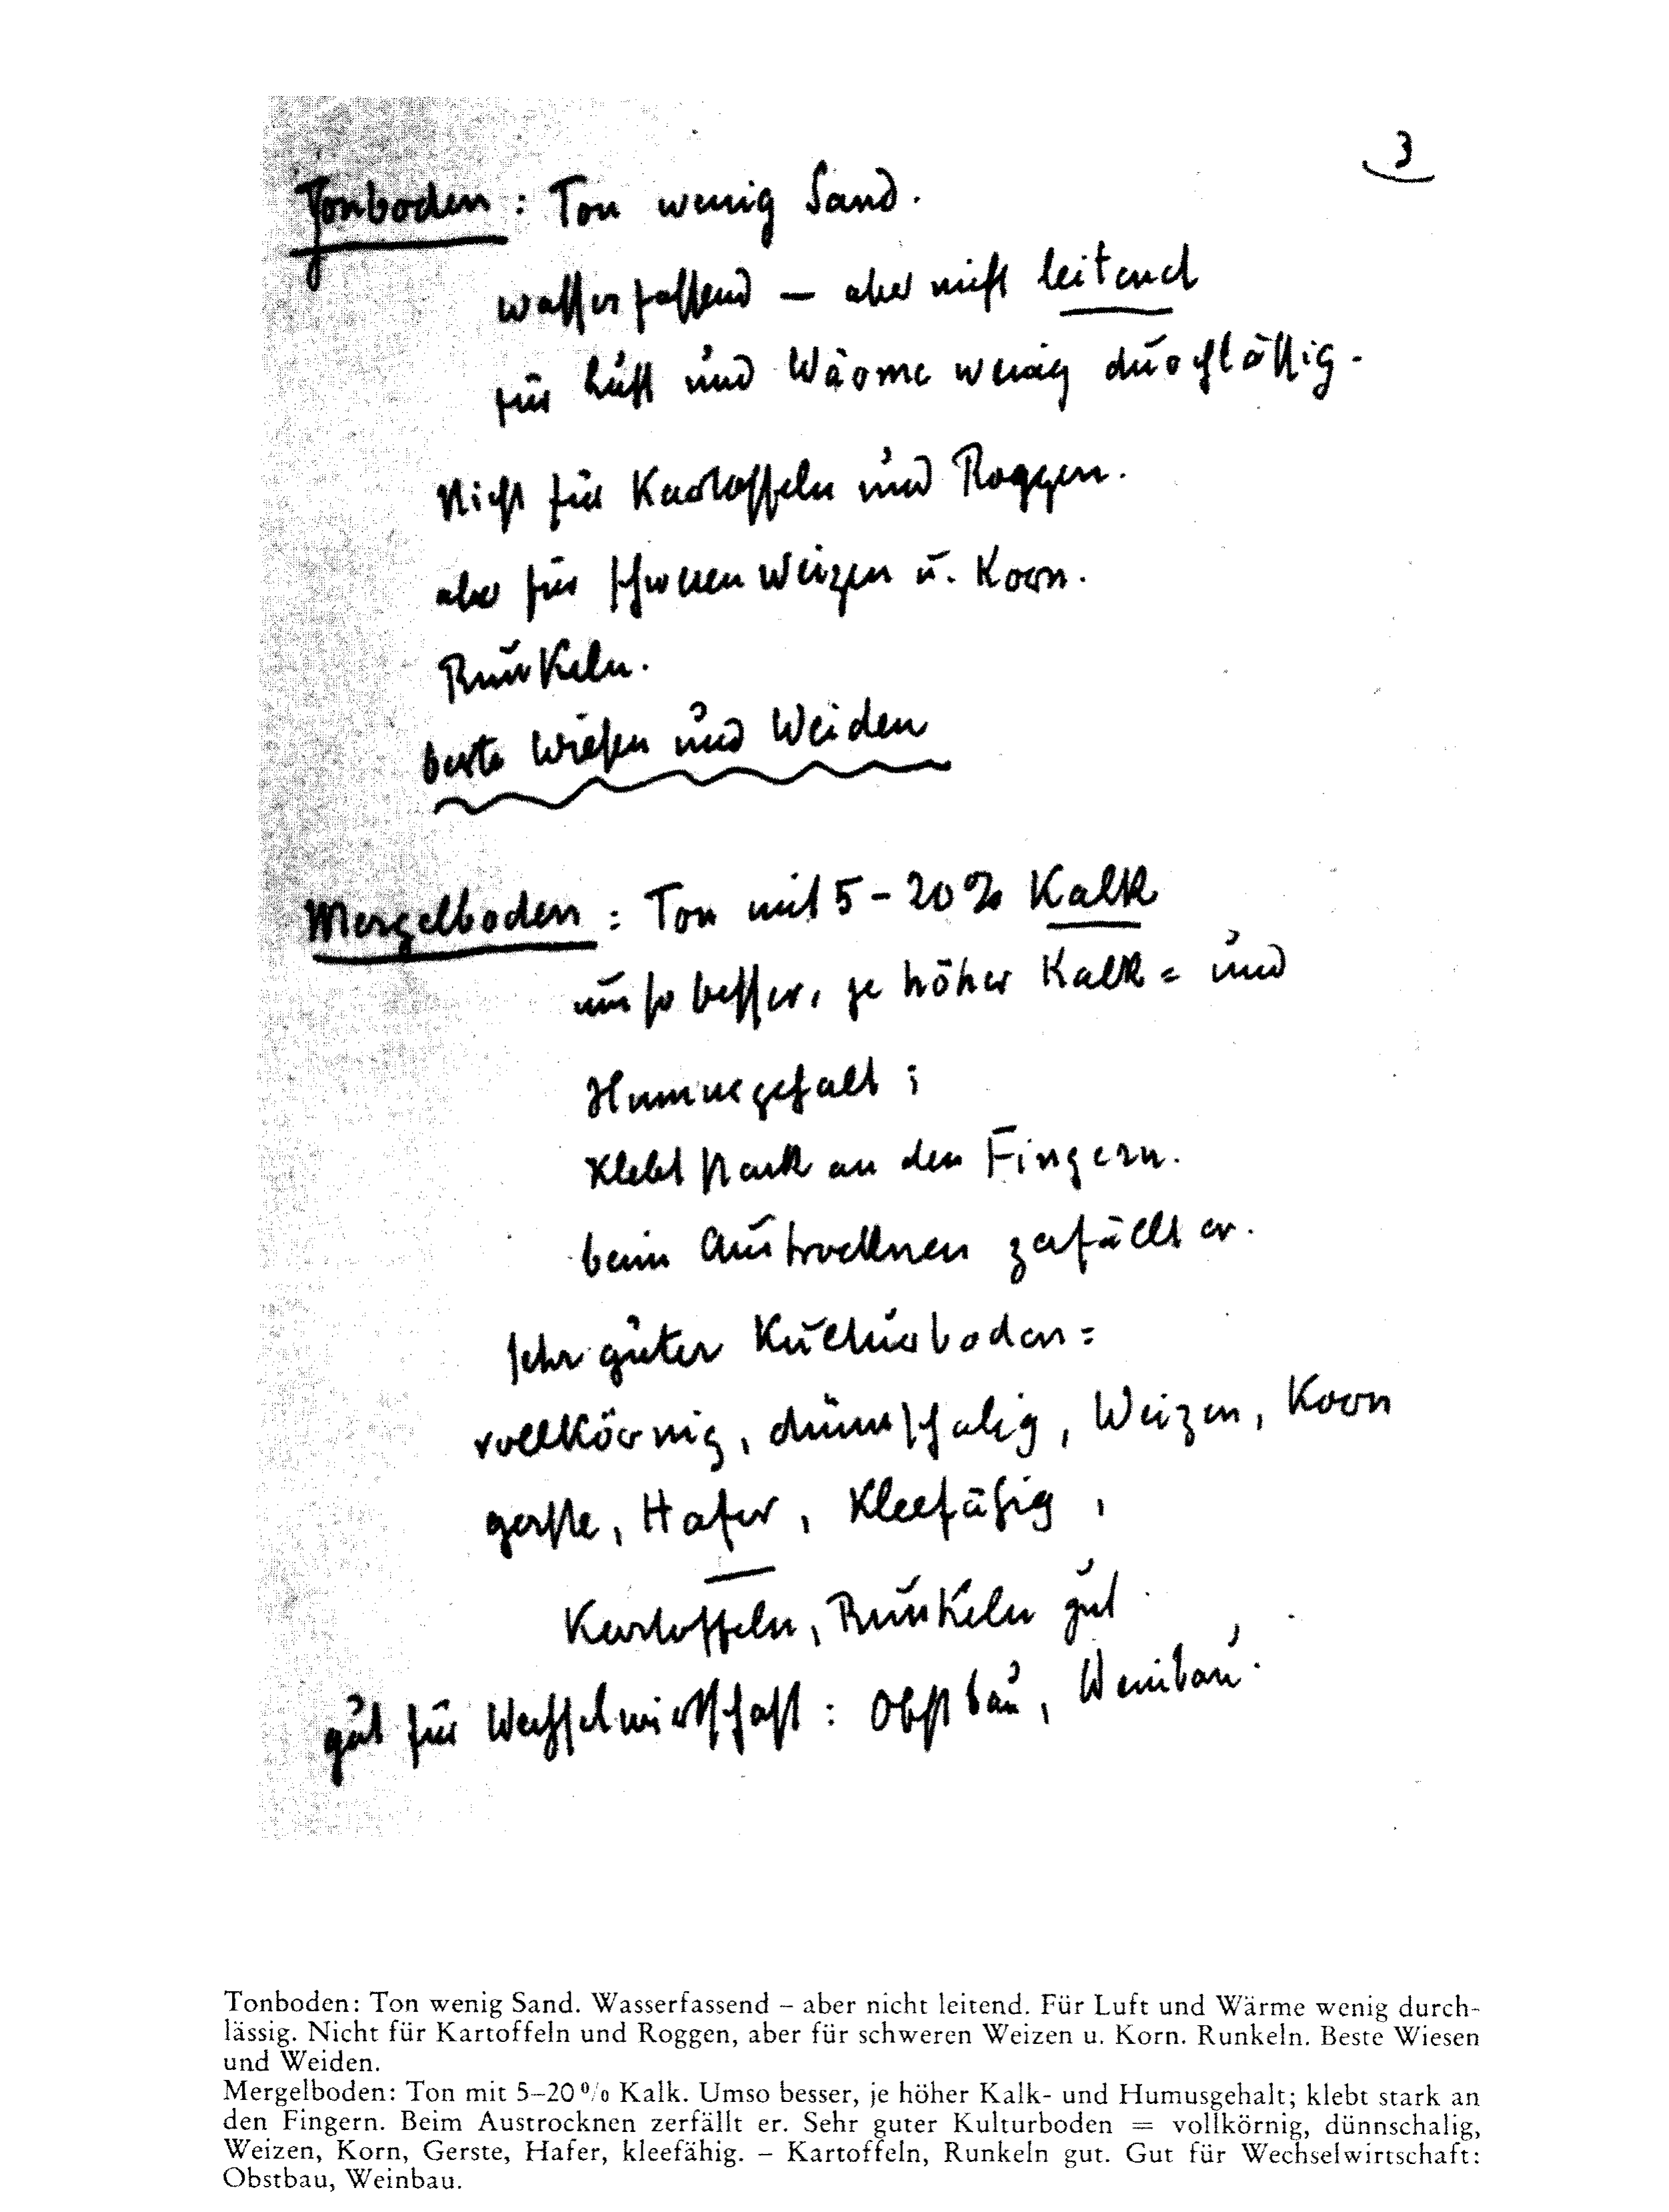 3
Tonboden: Ton wenig Sand.
wasserfassend – aber nicht leitend
für Luft und Wärme wenig durchlässig.
Nicht für Kartoffeln und Roggen.
aber für schweren Weizen u. Korn.
Runkeln.
beste Wiesen und Weiden
Mergelboden: Ton mit 5-20% Kalk
umso besser, je höher Kalk= und
Humusgehalt;
klebt stark an den Fingern.
beim Austrocknen zerfällt er.
Sehr guter Kulturboden =
vollkörnig, dünnschalig, Weizen, Korn
gerste, Hafer, Kleefähig,
—
Kartoffeln, Runkeln gut.
gut für Wechselwirtschaft: Obstbau, Weinbau.
Tonboden: Ton wenig Sand. Wasserfassend – aber nicht leitend. Für Luft und Wärme wenig durch-
lässig. Nicht für Kartoffeln und Roggen, aber für schweren Weizen u. Korn. Runkeln. Beste Wiesen
und Weiden.
Mergelboden: Ton mit 5–20% Kalk. Umso besser, je höher Kalk- und Humusgehalt; klebt stark an
den Fingern. Beim Austrocknen zerfällt er. Sehr guter Kulturboden = vollkörnig, dünnschalig,
Weizen, Korn, Gerste, Hafer, kleefähig. – Kartoffeln, Runkeln gut. Gut für Wechselwirtschaft:
Obstbau, Weinbau.